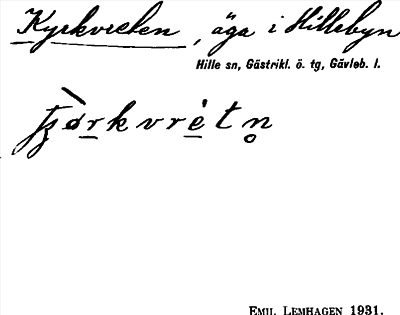 Kyrkvreten, äga i Hillebyn
Hille sn, Gästrikl. ö. tg, Gävleb. l.
tʂø̀rkvrètn̥
EMIL LEMHAGEN 1931.